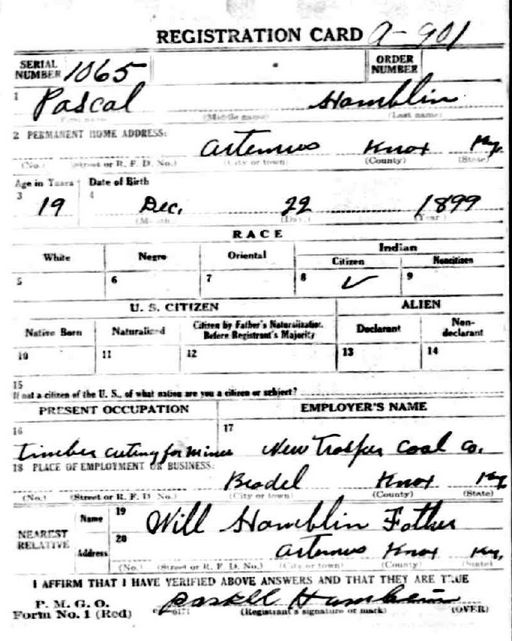 REGISTRATION CARD A-901
SERIAL NUMBER 1065 ORDER NUMBER
1 Pascal Hamblin
(First name) (Middle name) (Last name)
2 PERMANENT HOME ADDRESS:
Artemus Knox Ky.
(No.) (Street or R. F. D. No.) (City or town) (County) (State)
Age in Years Date of Birth
3 4
19 Dec. 22 1899
(Month) (Day) (Year)
RACE
White Negro Oriental Indian
Citizen Noncitizen
5 6 7 8 ✓ 9
U. S. CITIZEN ALIEN
Native Born Naturalized Citizen by Father's Naturalization Before Registrant's Majority Declarant Non-declarant
10 11 12 13 14
15
If not a citizen of the U. S., of what nation are you a citizen or subject?
PRESENT OCCUPATION EMPLOYER'S NAME
16 17
timber cuting for mines New Trosper Coal Co.
18 PLACE OF EMPLOYMENT OR BUSINESS:
Knox Ky
(No.) (Street or R. F. D. No.) (City or town) (County) (State)
NEAREST RELATIVE
Name 19 Will Hamblin Father
Address 20 Artemus Knox Ky.
(No.) (Street or R. F. D. No.) (City or town) (County) (State)
I AFFIRM THAT I HAVE VERIFIED ABOVE ANSWERS AND THAT THEY ARE TRUE
P. M. G. O.
Form No. 1 (Red) Paskell Hamblein
(Registrant's signature or mark) (OVER)